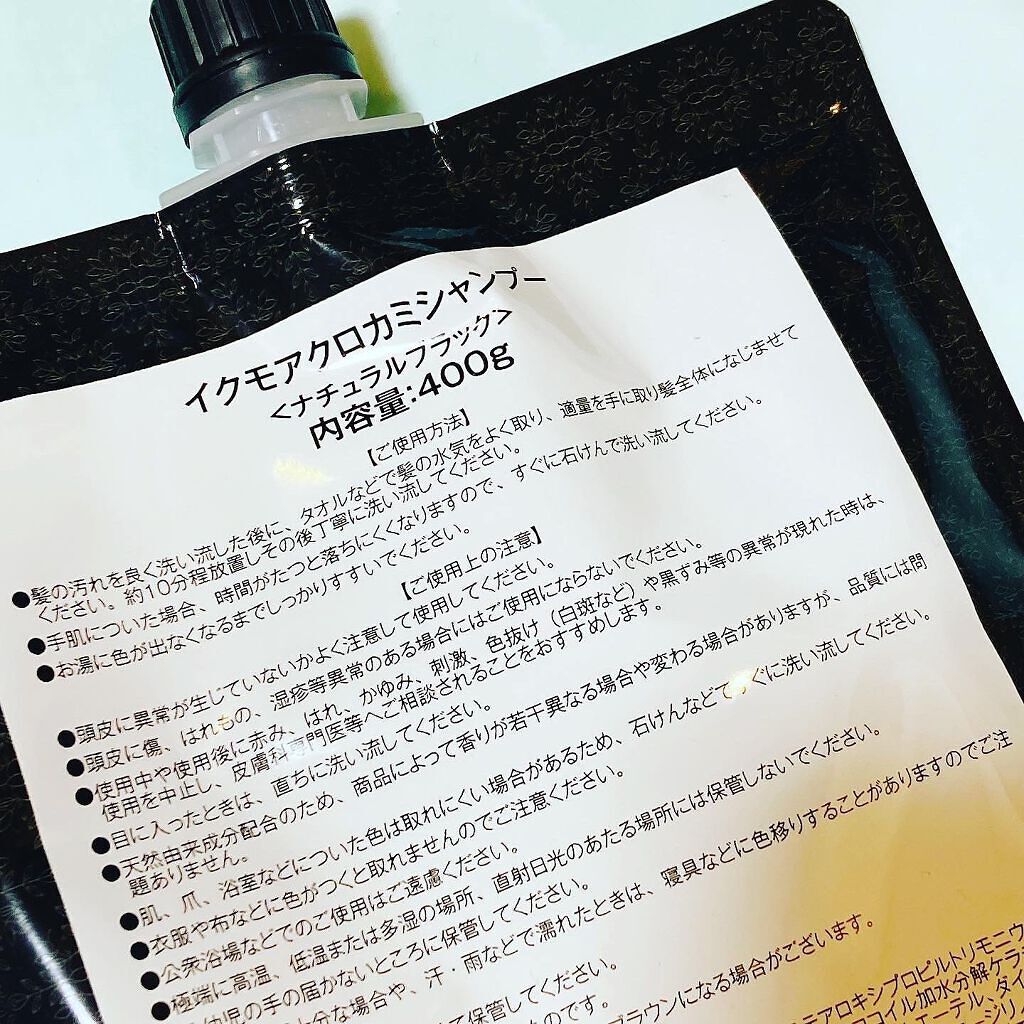 イクモアクロカミシャンプー
<ナチュラルブラック>
内容量:400g
【ご使用方法】
●髪の汚れを良く洗い流した後に、タオルなどで髪の水気をよく取り、適量を手に取り髪全体になじませて
ください。約10分程放置しその後丁寧に洗い流してください。
●手肌についた場合、時間がたつと落ちにくくなりますので、すぐに石けんで洗い流してください。
●お湯に色が出なくなるまでしっかりすすいでください。
【ご使用上の注意】
●頭皮に異常が生じていないかよく注意して使用してください。
●頭皮に傷、はれもの、湿疹等異常のある場合にはご使用にならないでください。
●使用中や使用後に赤み、はれ、かゆみ、刺激、色抜け(白斑など)や黒ずみ等の異常が現れた時は、
使用を中止し、皮膚科専門医等へご相談されることをおすすめします。
●目に入ったときは、直ちに洗い流してください。
●天然由来成分配合のため、商品によって香りが若干異なる場合や変わる場合がありますが、品質には問
題ありません。
●肌、爪、浴室などについた色は取れにくい場合があるため、石けんなどですぐに洗い流してください。
●衣服や布などに色がつくと取れませんのでご注意ください。
●公衆浴場などでのご使用はご遠慮ください。
●極端に高温、低温または多湿の場所、直射日光のあたる場所には保管しないでください。
幼児の手の届かないところに保管してください。
分な場合や、汗・雨などで濡れたときは、寝具などに色移りすることがありますのでご注
保管してください。
ものです。
ブラウンになる場合がございます。
テアロキシプロピルトリモニウ
コイル加水分解ケラ
エーテル、ダイ